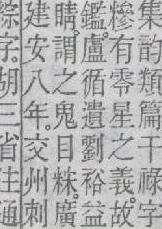 集韵類篇干祿字
糝有零星之義。故
鑑。盧循遺劉裕益
睛。謂之鬼目粖。廣
建安八年。交州刺
綜字。胡三省注通